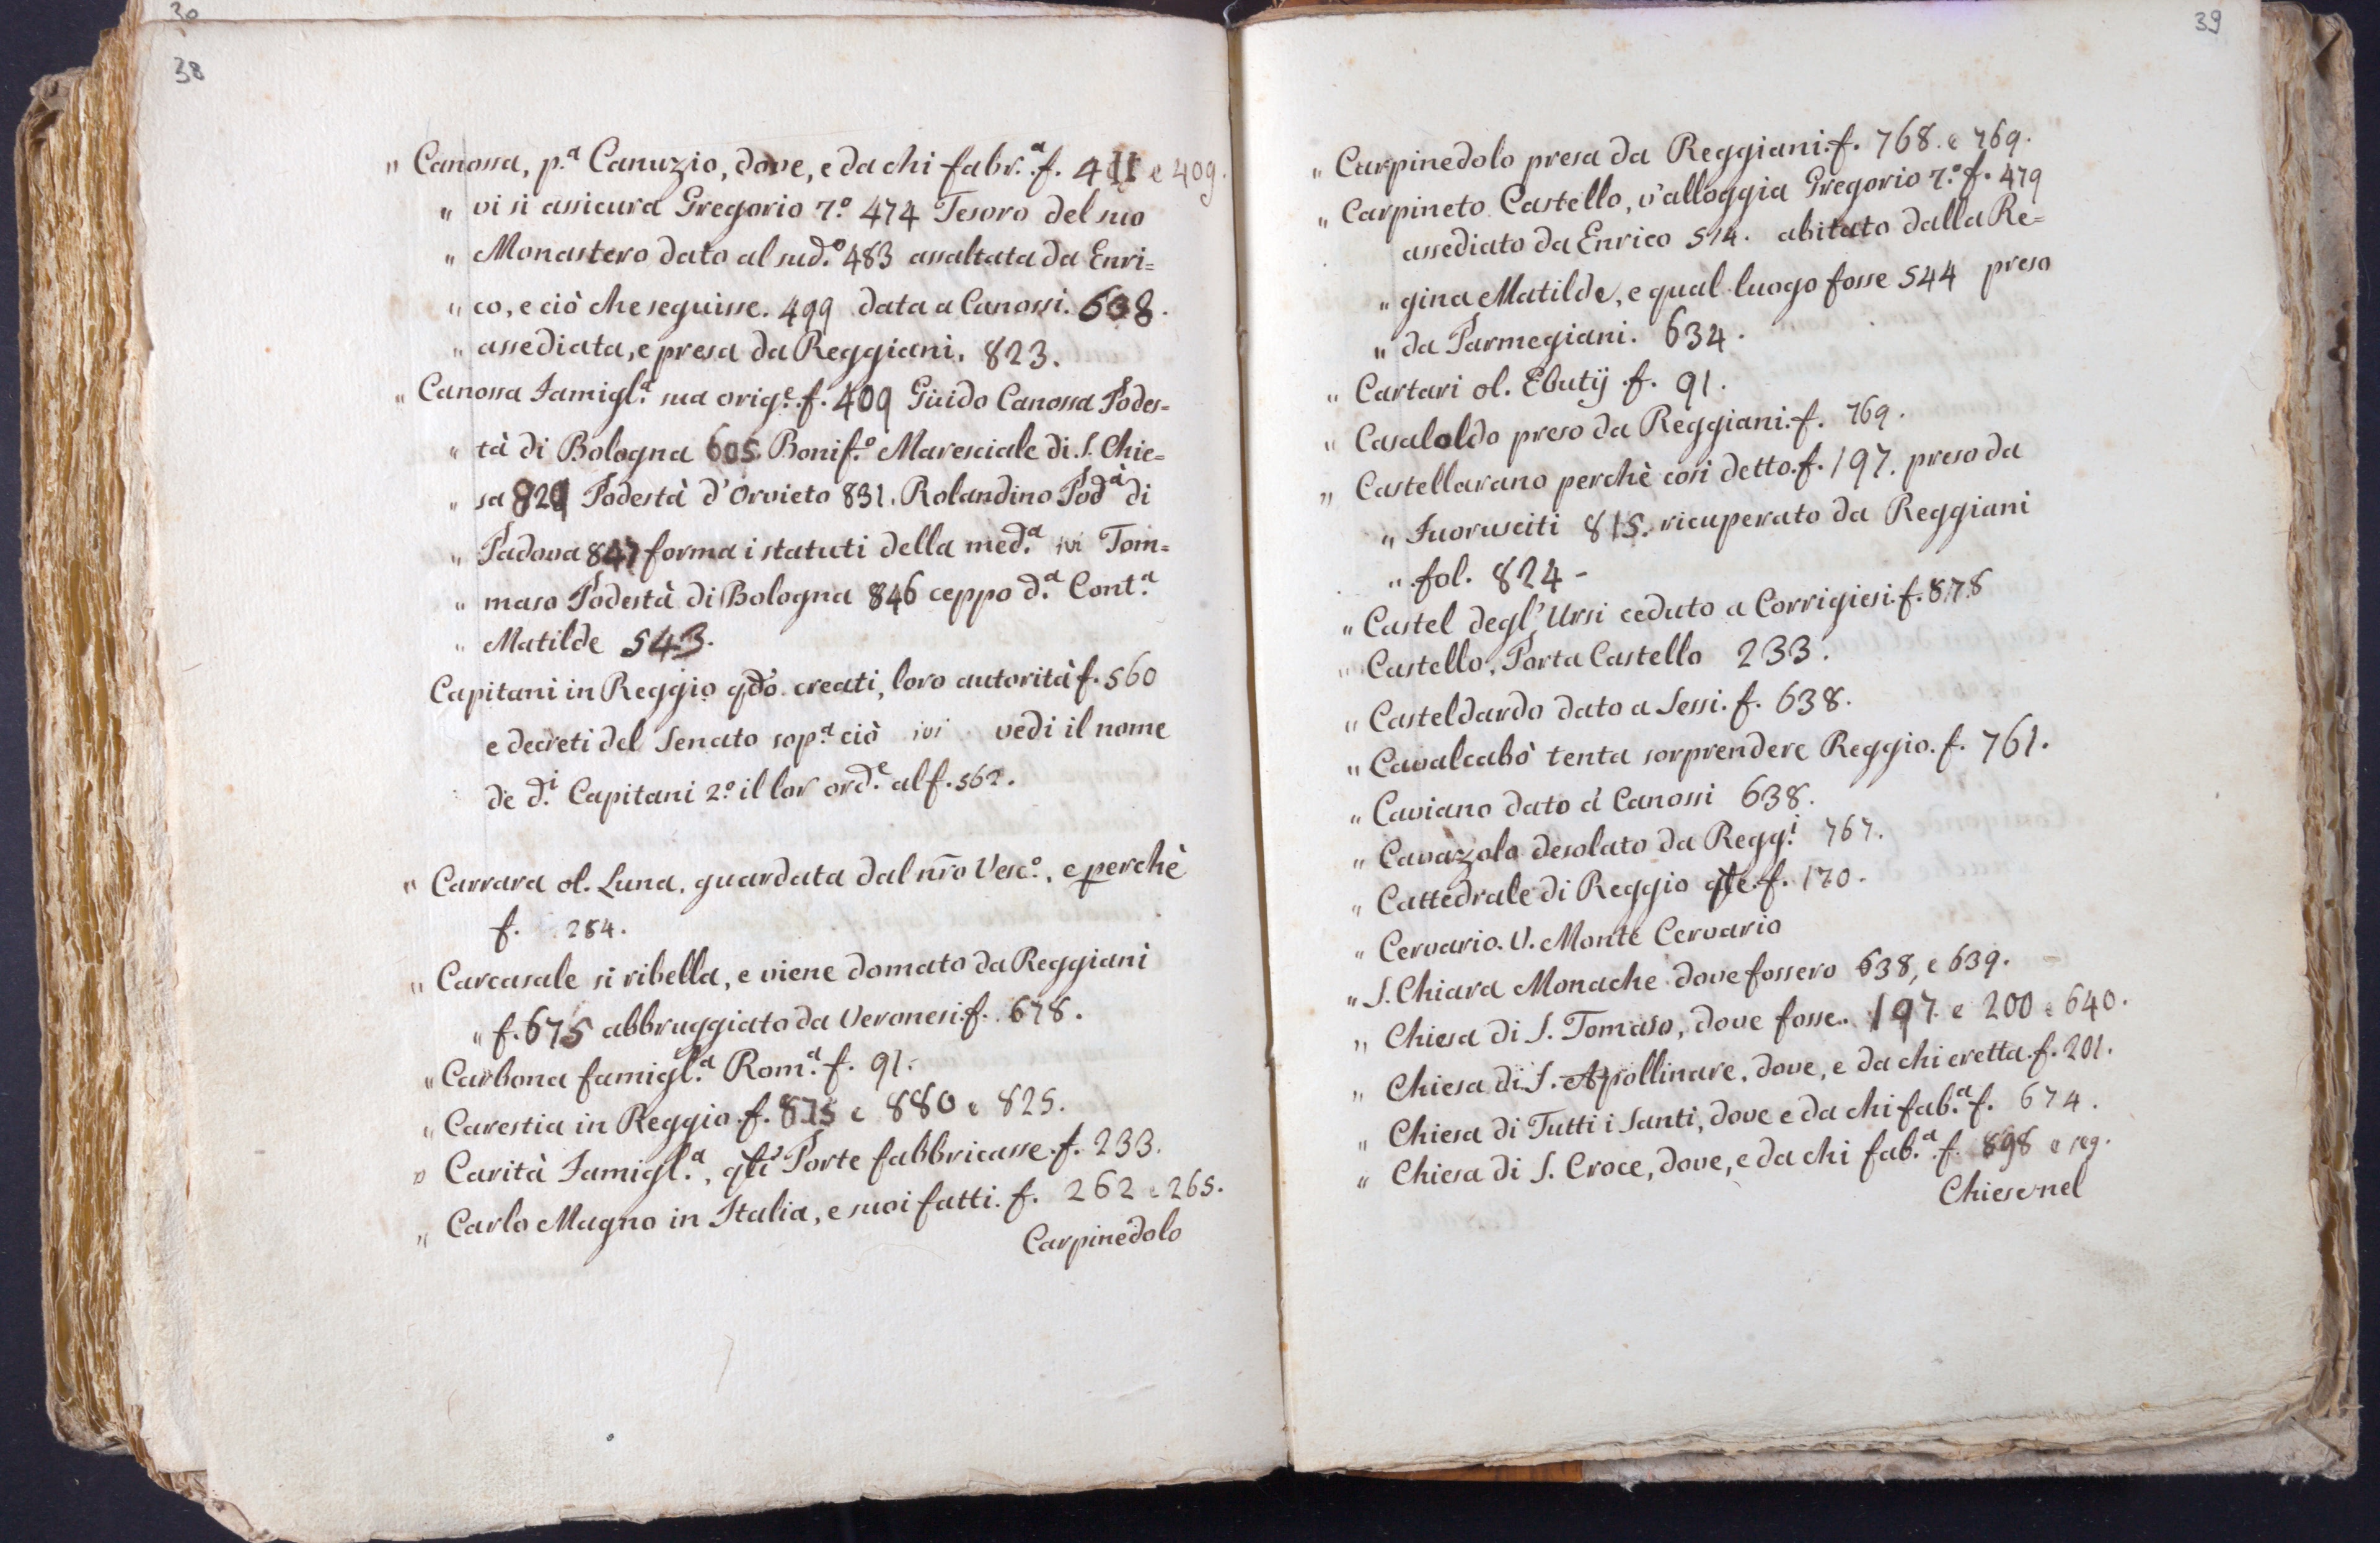 30
38
" Canossa, p.ª Canuzio, dove, e da chi fabr.ª f. 411 e 409.
" vi si assicura Gregorio 7.º 474 Tesoro del suo
" Monastero dato al sud.º 483 assaltata da Enri=
" co, e ciò che seguisse. 499 data a Canossi. 638.
" assediata, e presa da Reggiani. 823.
" Canossa Famigl.ª sua orig.e f. 409 Guido Canossa Podes=
" tà di Bologna 605 Bonif.º Maresciale di S. Chie=
" sa 829 Podestà d'Orvieto 831. Rolandino Pod.à di
" Padova 847 forma i statuti della med.ª ivi Tom=
" maso Podestà di Bologna 846 ceppo d.ª Cont.ª
" Matilde 543.
Capitani in Reggio qdo. creati, loro autorità f. 560
e decreti del Senato sop.ª ciò ivi vedi il nome
de d.i Capitani 2.º il lor ord.e al f. 562.
" Carrara ol. Luna, guardata dal nro Vesc.º, e perchè
f. 284.
" Carcasale si ribella, e viene domato da Reggiani
" f. 675 abbruggiato da Veronesi f. 678.
" Carbona famigl.ª Rom.ª f. 91.
" Carestia in Reggio f. 875 e 880 e 825.
" Carità Famigl.ª, qli Porte fabbricasse f. 233.
" Carlo Magno in Italia, e suoi fatti. f. 262 e 265.
Carpinedolo
39
" Carpinedolo presa da Reggiani. f. 768. e 769.
" Carpineto Castello, v'alloggia Gregorio 7.º f. 479
assediato da Enrico 514. abitato dalla Re=
" gina Matilde, e qual luogo fosse 544 preso
" da Parmegiani. 634.
" Cartari ol. Ebutij f. 91.
" Casaloldo preso da Reggiani. f. 769.
" Castellarano perchè così detto. f. 197. preso da
" Fuorusciti 815. ricuperato da Reggiani
" fol. 824 -
" Castel degl'Ursi ceduto a Corrigiesi. f. 878
" Castello, Porta Castello 233.
" Casteldardo dato a Sessi. f. 638.
" Cavalcabò tenta sorprendere Reggio. f. 761.
" Caviano dato à Canossi 638.
" Cavazzola desolato da Regg.i 767.
" Cattedrale di Reggio qle. f. 170.
" Cervario. V. Monte Cervario
" S. Chiara Monache dove fossero 638, e 639.
" Chiesa di S. Tomaso, dove fosse. 197 e 200 e 640.
" Chiesa di S. Apollinare, dove, e da chi eretta. f. 201.
" Chiesa di Tutti i Santi, dove e da chi fab.ª f. 674.
" Chiesa di S. Croce, dove, e da chi fab.ª f. 898 e seg.
Chiese nel